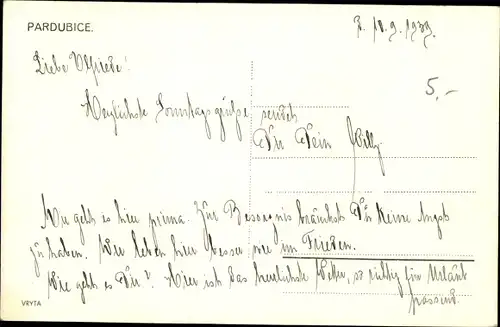 PARDUBICE.
P. 10.9.1939.
Liebe Elfriede!
5.-
Herzlichste Sonntagsgrüße sendet
Dir Dein Willy
Mir geht es hier prima. Zur Besorgnis bräuchst Du keine Angst
zu haben. Wir leben hier besser wie im Frieden.
Wie geht es Dir? Hier ist das herrlichste Wetter, so richtig für Urlaub
passend.
VRYTA